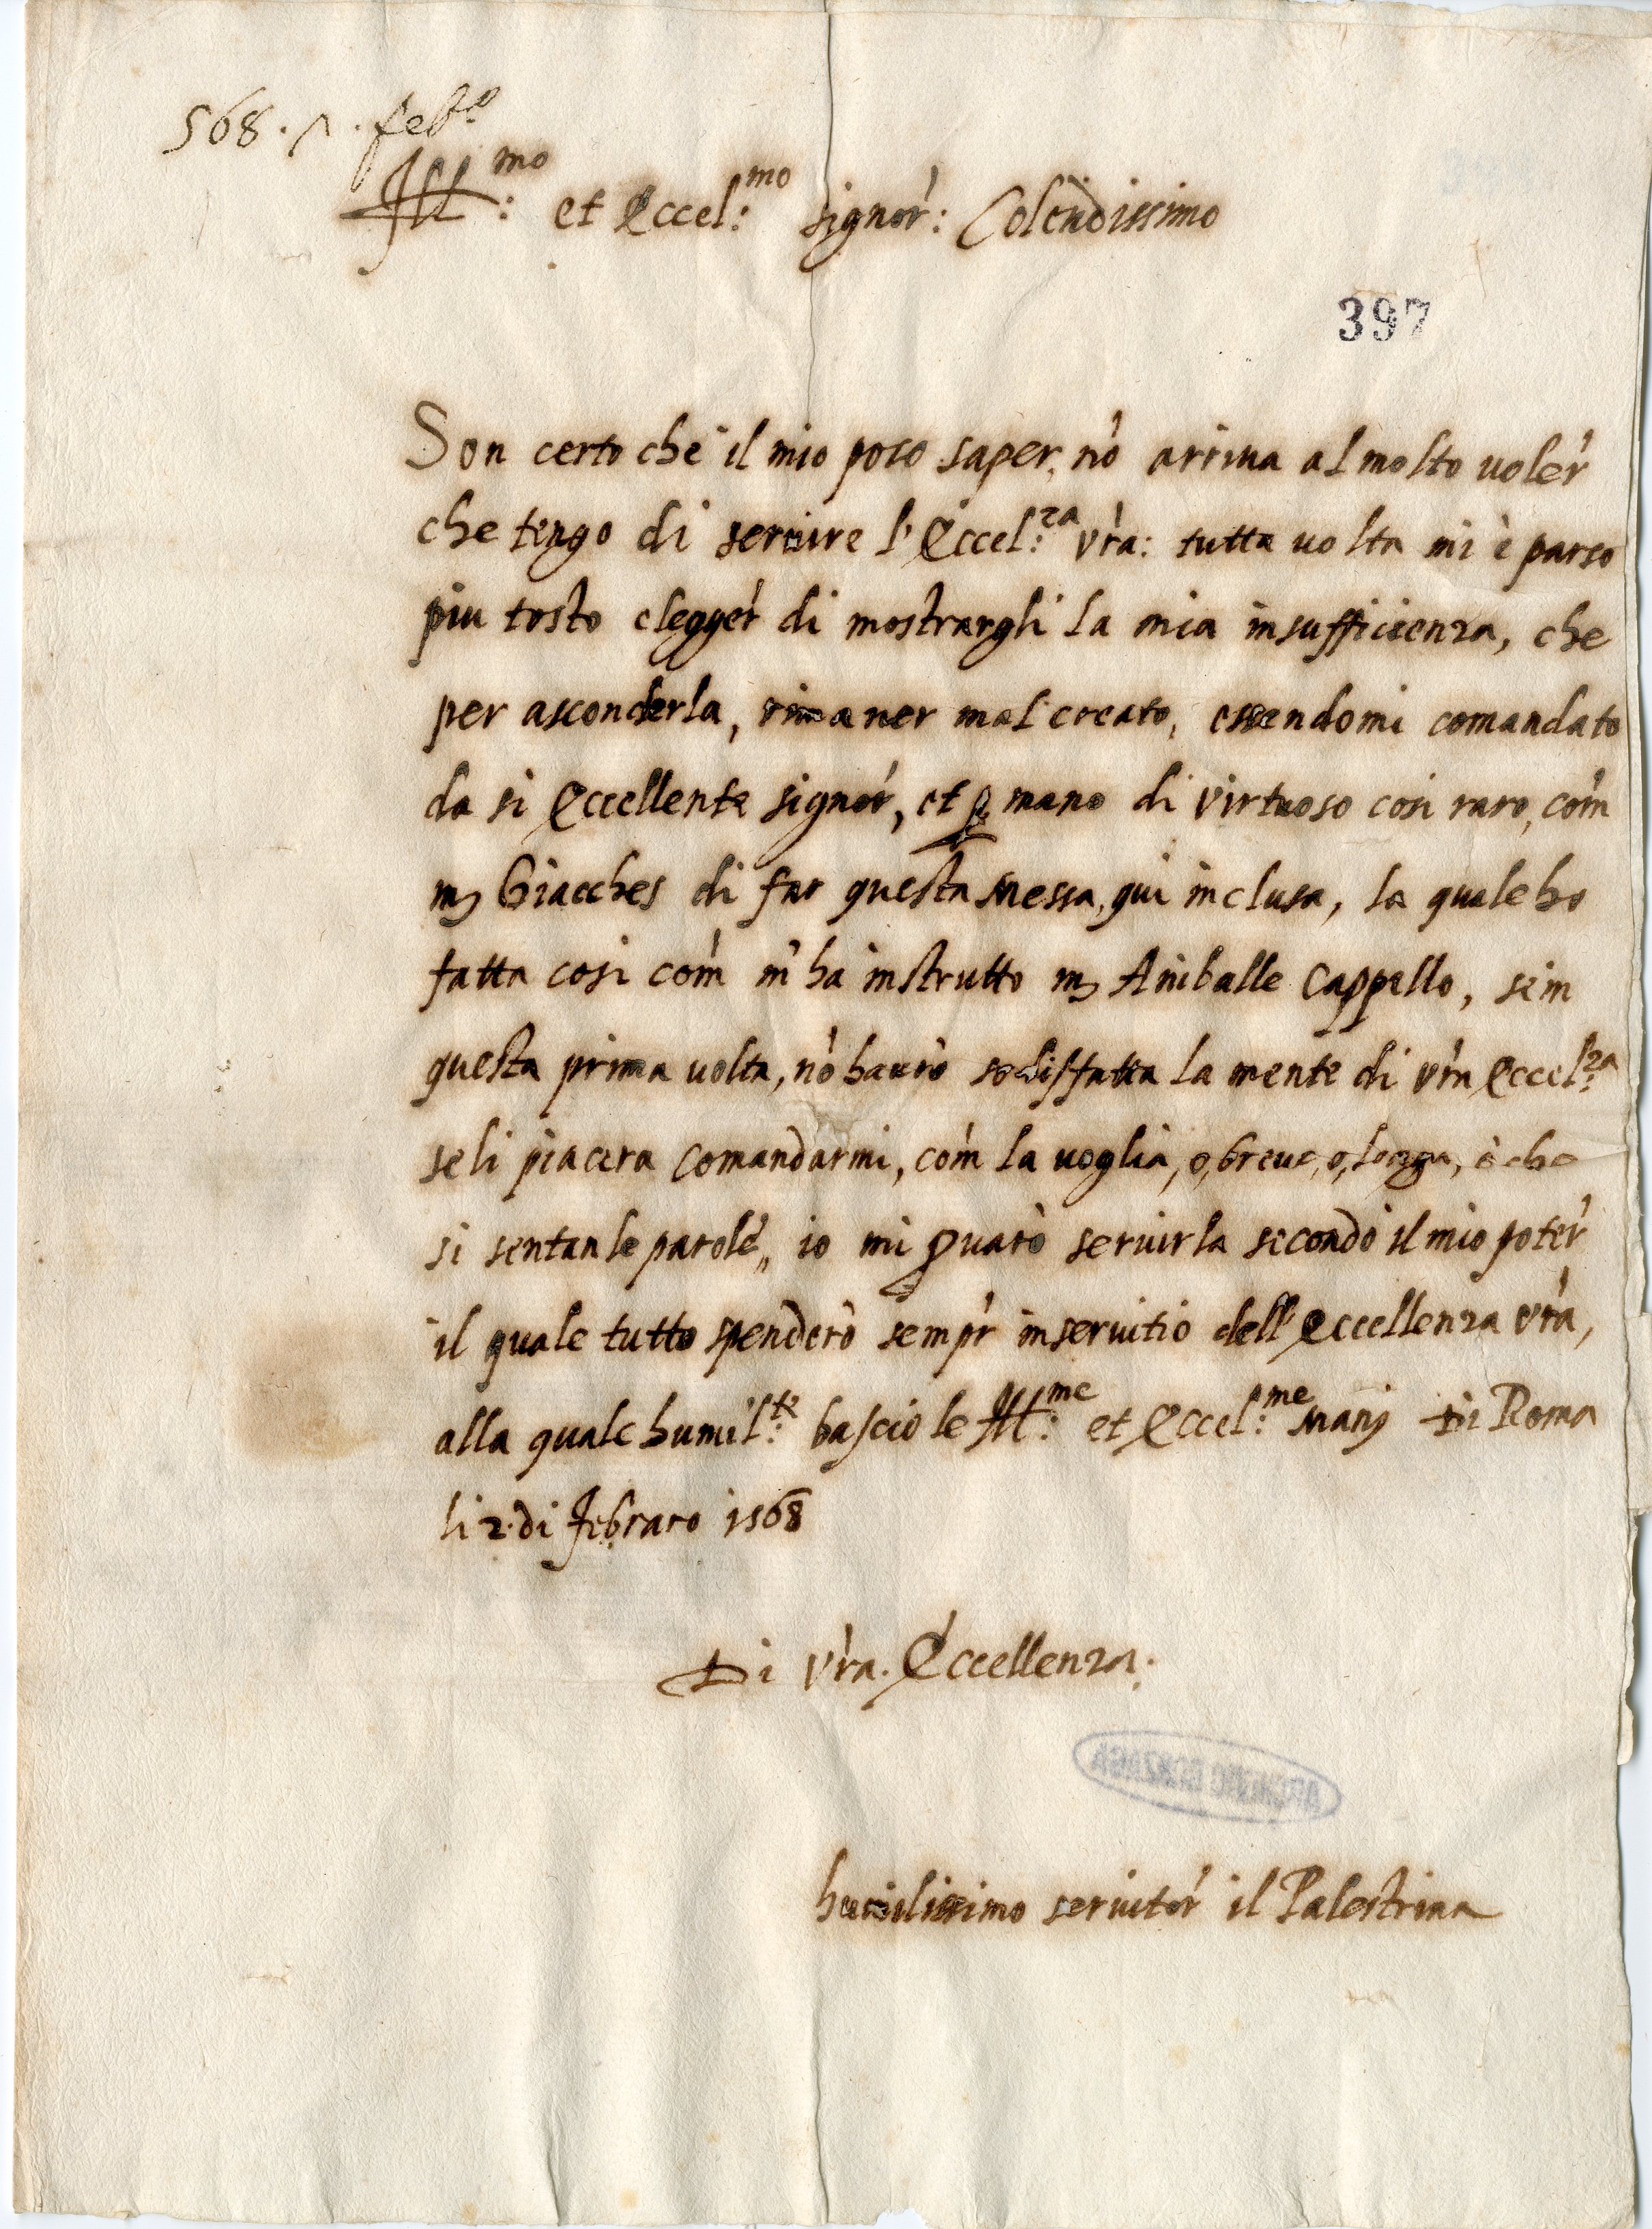 568 · feb.o
Ill:mo et Eccel:mo signor': Colendissimo
397
Son certo che il mio poco saper, nō arriua al molto uoler'
che tengo di seruire l'Eccel:za V'ra: tutta uolta mi è parso
piu tosto elegger' di mostrargli la mia insufficienza, che
per asconderla, rimaner mal creato, essendomi comandato
da si Eccellente signor', et ꝑ mano di virtuoso cosi raro, com'
mȝ Giacches di far questa Messa, qui inclusa, la quale ho
fatta cosi com' m'ha instrutto mȝ Aniballe Cappello, se in
questa prima uolta, nō hauro sodisfatta la mente di V'ra Eccel:za
se li piacera comandarmi, com' la uoglia, o, breue, o, longa, ò che
si sentan le parole, io mi ꝓuarò seruirla secondo il mio poter'
il quale tutto spenderò sempr' in seruitio dell'Eccellenza V'ra,
alla quale humil:te bascio le Ill:me et Eccel:me Manj Di Roma
li 2. di febraro 1568
Di V'ra. Eccellenza.
ARCHIVIO GONZAGA
humilissimo seruitor' il Palestrina